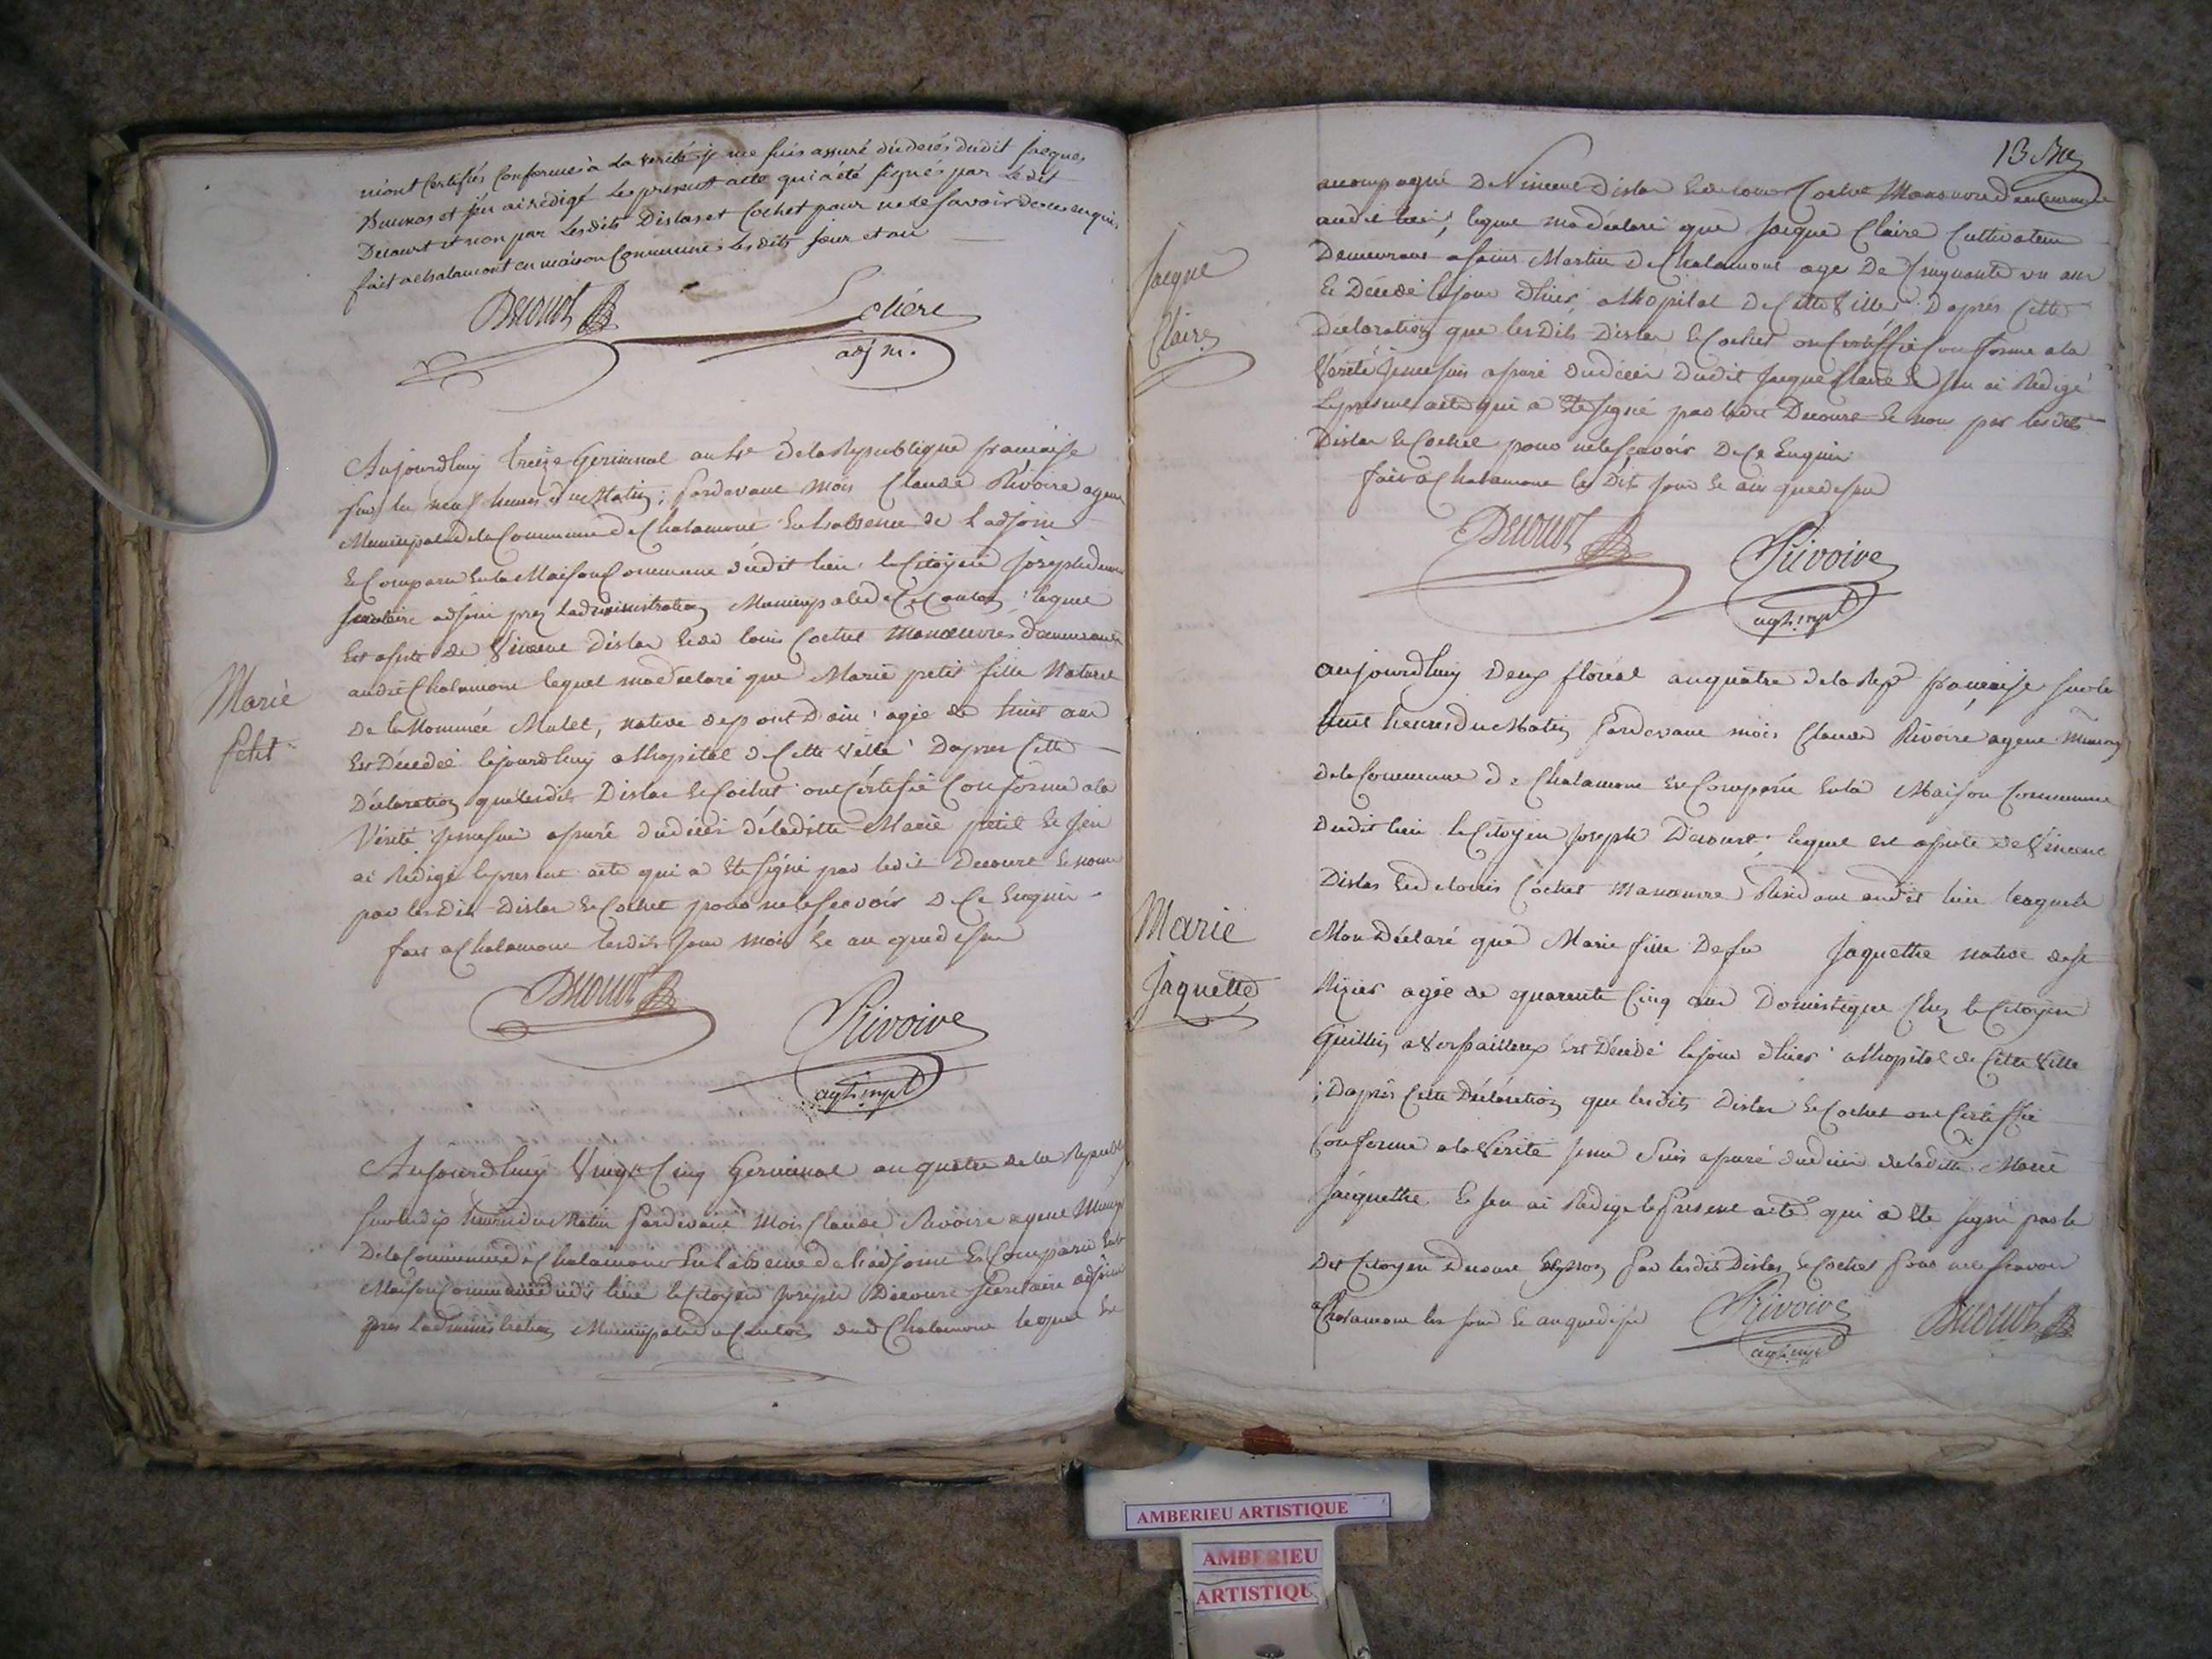 m'ont Certifiés Conformes à la verité je me suis assuré du decés dudit Jacques
et j'en ai rédigé le présent acte qui a été signés par le dit
Decourt et non par lesdits Dislas et Cochet pour ne le savoir de ce enquis
fait a chalamont en maison Commune lesdits jour et an
Decourt
adj m.
Aujourdhuy treize Germinal an 4e de la Republique française
sur les neuf heures du Matin; pardevant Moi Claude Rivoire agent
Municipal de la Commune de Chalamont en labsence de ladjoin
Est Comparu En la Maison Commune dudit lieu le Citoyen Joseph
secretaire adjoin près Ladministration Municipale de Ce Canton; lequel
Est assisté de Vincent Dislas et de louis Cochet manœuvres demeurant
audit Chalamont lequel ma declaré que Marie petit fille Naturel
De la Nommée Mulet, native de pont Dain agée de huit ans
Est Décedé le jourdhuy a lhopital de Cette Ville Dapres Cette
Déclaration que lesdits Dislas Et Cochet ont Cértifié Conforme a la
Vérité je me suis assuré du déces de laditte Marie petit Et jen
ai Rédigé le present acte qui a Eté signé par ledit Decourt Et non
par lesdits Dislas Et Cochet pour ne le scavoir De Ce Enquis
fait a Chalamont lesdits Jour Mois Et an que dessus
Marie
petit
Decourt
Rivoire
agt. mpl
Aujourdhuy Vingt Cinq Germinal an quatre de la Republ
sur les dix heures du Matin pardevant Moi Claude Rivoire agent Municip
De la Commune de Chalamont En labsence de ladjoint Est Comparu En la
Maison Commune dudit lieu le Citoyen Joseph Decourt secretaire adjoin
près Ladministration Municipale du Canton dud Chalamont lequel Est
13
acompagné De Vincent Dislas Et de louis Cochet Manœuvre demeurant
audit lieu; lequel ma déclaré que Jacque Claire Cultivateur
Demeurant a saint Martin De Chalamont agé De Cinquante un ans
Est Décedé le jour dhier a lhopital De Cette Ville Daprès Cette
Déclaration que lesdits Dislas Et Cochet ont Certiffié Conforme a la
Vérité je me suis assuré du déces dudit Jacque Claire Et jen ai Rédigé
le present acte qui a Eté signé par ledit Decourt Et non par lesdits
Dislas Et Cochet pour ne le sçavoir De Ce Enquis
fait a Chalamont les Dits jour Et an que dessus
Jacque
Claire
Decourt
Rivoire
agt. mpl
aujourdhuy Deux floréal an quatre de la Rep française sur les
huit heures du Matin pardevant moi Claude Rivoire agent
de la Commune de Chalamont Est Comparu En la Maison Commune
dudit lieu le Citoyen Joseph Decourt; lequel est assisté de Vincent
Dislas Et de louis Cochet Manœuvre Residant audit lieu lesquels
Mon Déclaré que Marie fille De feu Jaquette native de st
agée de quarente Cinq ans Domestique Chez le Citoyen
Guillin a Versailleux Est Décedé le jour dhier a lhopital de Cette Ville
; Daprès Cette Déclaration que lesdits Dislas Et Cochet ont Certiffié
Conforme a la Vérité je me Suis assuré du déces de laditte Marie
Jaquette Et jen ai Rédigé le Present acte qui a Eté signé par le
Dit Citoyen Decourt Et non par lesdits Dislas Et Cochet pour ne le scavoir
a Chalamont les jour Et an que dessus
Marie
Jaquette
Rivoire
agt. mpl
Decourt
AMBERIEU ARTISTIQUE
AMBERIEU
ARTISTIQU